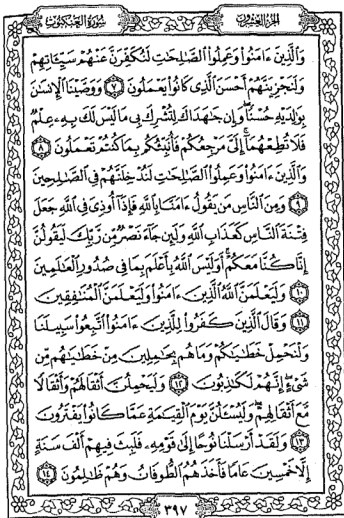 سُورَةُ العَنكبُوتِ
الجُزءُ العِشرُونَ
وَالَّذِينَ ءَامَنُوا۟ وَعَمِلُوا۟ الصَّـٰلِحَـٰتِ لَنُكَفِّرَنَّ عَنْهُمْ سَيِّـَٔاتِهِمْ
وَلَنَجْزِيَنَّهُمْ أَحْسَنَ الَّذِى كَانُوا۟ يَعْمَلُونَ ٧ وَوَصَّيْنَا الْإِنسَـٰنَ
بِوَٰلِدَيْهِ حُسْنًا وَإِن جَـٰهَدَاكَ لِتُشْرِكَ بِى مَا لَيْسَ لَكَ بِهِۦ عِلْمٌ
فَلَا تُطِعْهُمَآ إِلَىَّ مَرْجِعُكُمْ فَأُنَبِّئُكُم بِمَا كُنتُمْ تَعْمَلُونَ ٨
وَالَّذِينَ ءَامَنُوا۟ وَعَمِلُوا۟ الصَّـٰلِحَـٰتِ لَنُدْخِلَنَّهُمْ فِى الصَّـٰلِحِينَ
٩ وَمِنَ النَّاسِ مَن يَقُولُ ءَامَنَّا بِاللَّهِ فَإِذَآ أُوذِىَ فِى اللَّهِ جَعَلَ
فِتْنَةَ النَّاسِ كَعَذَابِ اللَّهِ وَلَئِن جَآءَ نَصْرٌ مِّن رَّبِّكَ لَيَقُولُنَّ
إِنَّا كُنَّا مَعَكُمْ أَوَلَيْسَ اللَّهُ بِأَعْلَمَ بِمَا فِى صُدُورِ الْعَـٰلَمِينَ
١٠ وَلَيَعْلَمَنَّ اللَّهُ الَّذِينَ ءَامَنُوا۟ وَلَيَعْلَمَنَّ الْمُنَـٰفِقِينَ
١١ وَقَالَ الَّذِينَ كَفَرُوا۟ لِلَّذِينَ ءَامَنُوا۟ اتَّبِعُوا۟ سَبِيلَنَا
وَلْنَحْمِلْ خَطَـٰيَـٰكُمْ وَمَا هُم بِحَـٰمِلِينَ مِنْ خَطَـٰيَـٰهُم مِّن
شَىْءٍ إِنَّهُمْ لَكَـٰذِبُونَ ١٢ وَلَيَحْمِلُنَّ أَثْقَالَهُمْ وَأَثْقَالًا
مَّعَ أَثْقَالِهِمْ وَلَيُسْـَٔلُنَّ يَوْمَ الْقِيَـٰمَةِ عَمَّا كَانُوا۟ يَفْتَرُونَ
١٣ وَلَقَدْ أَرْسَلْنَا نُوحًا إِلَىٰ قَوْمِهِۦ فَلَبِثَ فِيهِمْ أَلْفَ سَنَةٍ
إِلَّا خَمْسِينَ عَامًا فَأَخَذَهُمُ الطُّوفَانُ وَهُمْ ظَـٰلِمُونَ ١٤
٣٩٧